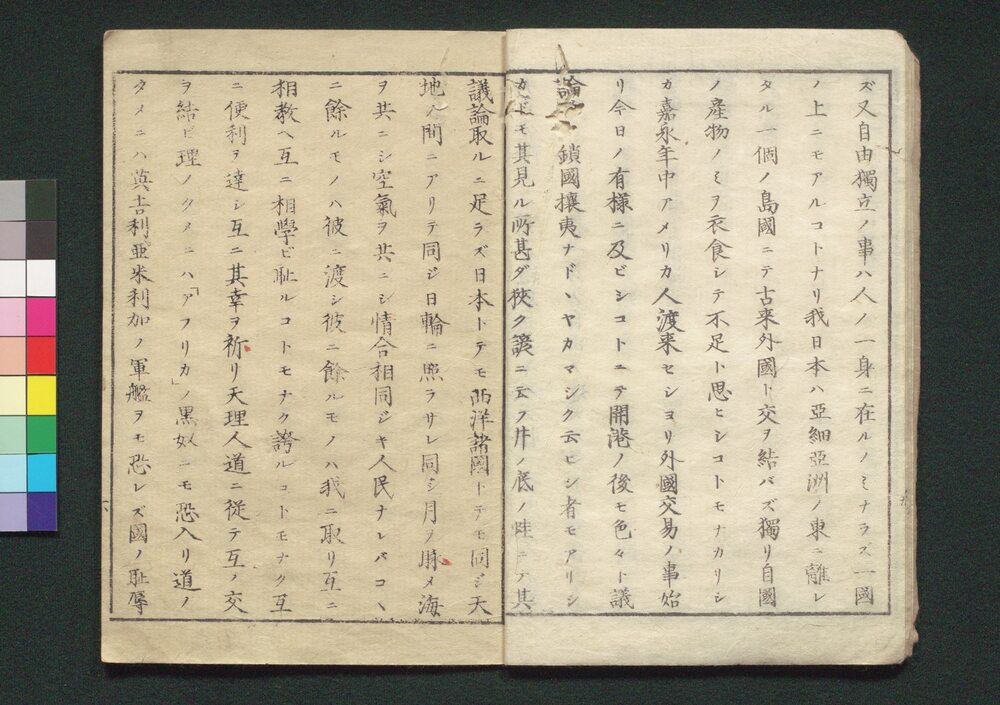 ズ又自由獨立ノ事ハ人ノ一身ニ在ルノミナラズ一國
ノ上ニモアルコトナリ我日本ハ亞細亞洲ノ東ニ離レ
タル一個ノ島國ニテ古来外國ト交ヲ結バズ獨リ自國
ノ産物ノミヲ衣食シテ不足ト思ヒシコトモナカリシ
カ嘉永年中アメリカ人渡来セシヨリ外國交易ノ事始
リ今日ノ有様ニ及ビシコトニテ開港ノ後モ色々ト議
論 鎖國攘夷ナドヽヤカマシク云ヒシ者モアリシ
カドモ其見ル所甚ダ狹ク諺ニ云フ井ノ底ノ蛙ニテ其
議論取ルニ足ラズ日本トテモ西洋諸國トテモ同ジ天
地ノ間ニアリテ同ジ日輪ニ照ラサレ同ジ月ヲ眺メ海
ヲ共ニシ空氣ヲ共ニシ情合相同ジキ人民ナレバコヽ
ニ餘ルモノハ彼ニ渡シ彼ニ餘ルモノハ我ニ取リ互ニ
相教ヘ互ニ相學ビ耻ルコトモナク誇ルコトモナク互
ニ便利ヲ達シ互ニ其幸ヲ祈リ天理人道ニ従テ互ノ交
ヲ結ビ理ノタメニハ「アフリカ」ノ黒奴ニモ恐入リ道ノ
タメニハ英吉利亜米利加ノ軍艦ヲモ恐レズ國ノ耻辱